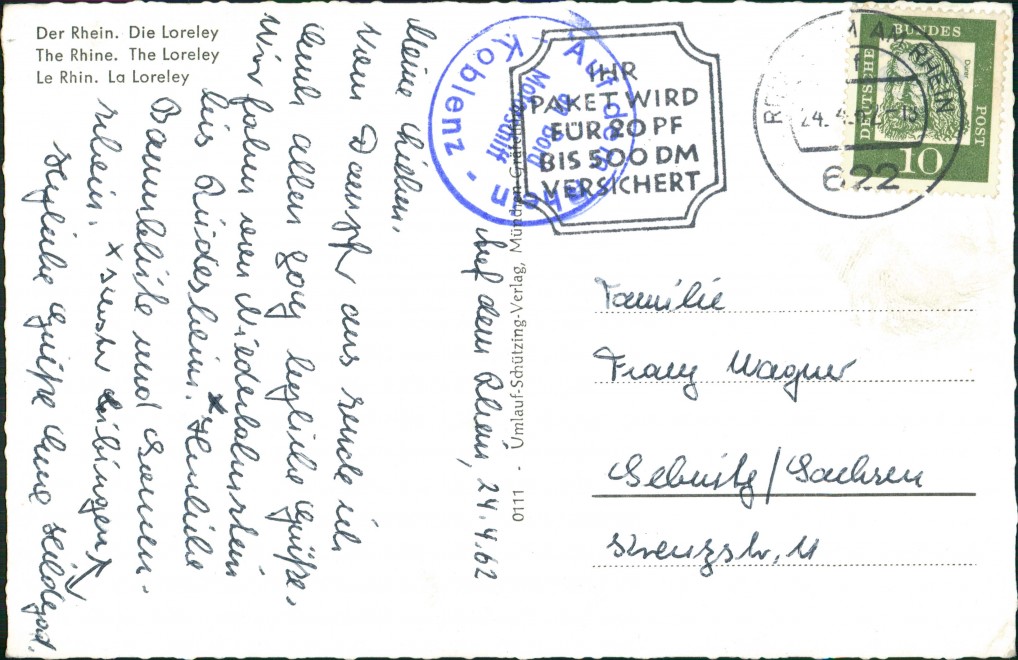 Der Rhein. Die Loreley
The Rhine. The Loreley
Le Rhin. La Loreley
Auf dem Rhein, 24.4.62
Meine Lieben,
vom Dampfer aus sende ich
Euch allen herzliche Grüße.
Wir fahren von Niederlahnstein
bis Rüdesheim. Herrliche
Baumblüte und Sonnen-
schein.
Herzliche Grüße Eure Hildegard.
0111 - Umlauf-Schützing-Verlag, Münden-Gräfelfing
Auf dem Rhein - Koblenz -
an Bord
Motorschiff
IHR
PAKET WIRD
FÜR 20 PF
BIS 500 DM
VERSICHERT
AM RHEIN
24.4.62
622
DEUTSCHE BUNDESPOST
Dürer
10
Familie
Franz Wagner
Sebnitz/Sachsen
Kreuzstr. 11